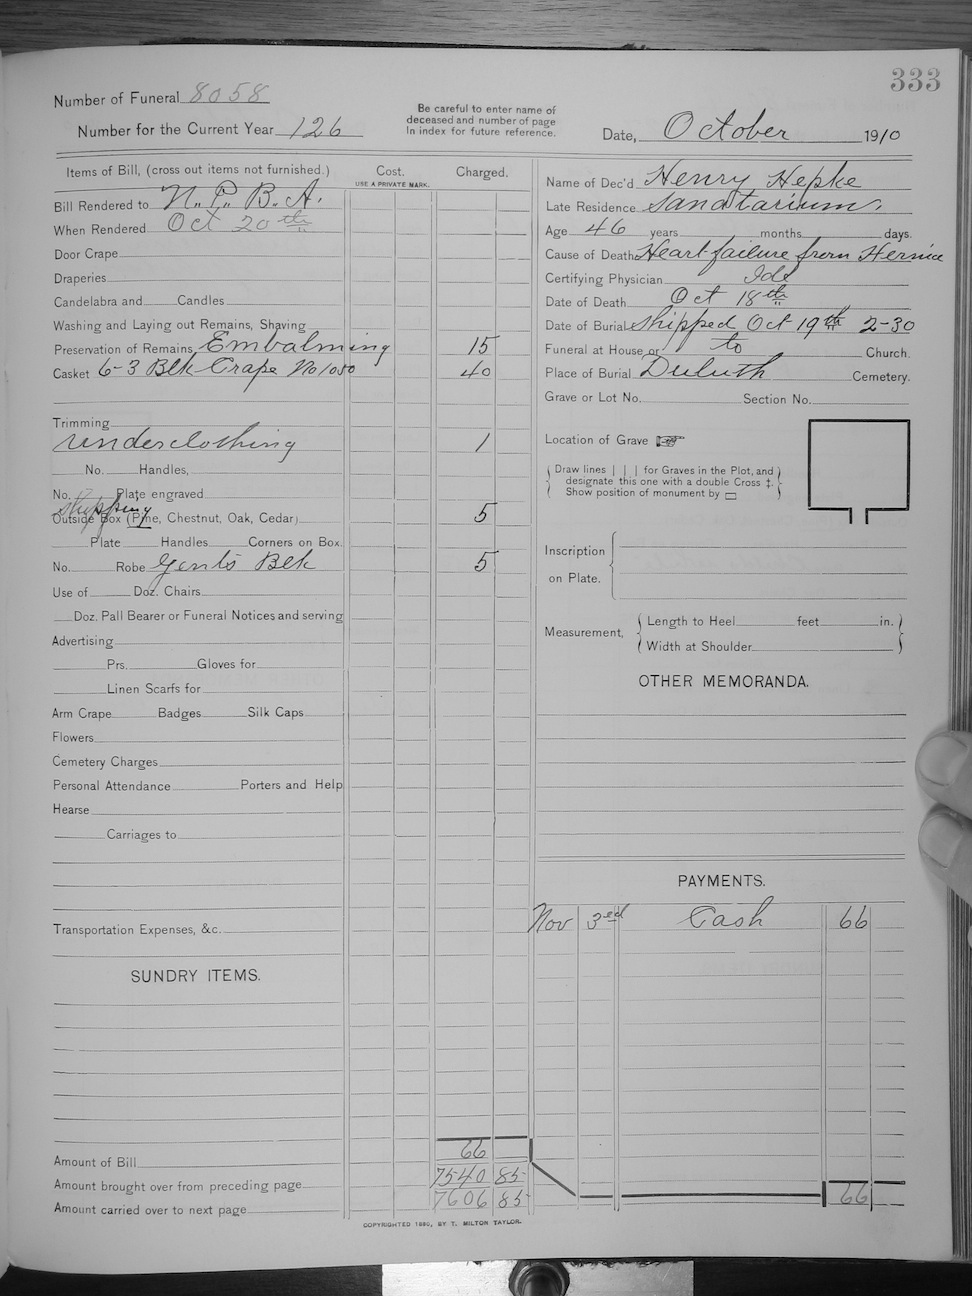 333
Number of Funeral 8058
Number for the Current Year 126
Be careful to enter name of
deceased and number of page
in index for future reference.
Date, October 1910
Items of Bill, (cross out items not furnished.)
Cost.
USE A PRIVATE MARK.
Charged.
Bill Rendered to N. P. B. A.
When Rendered Oct 20th
Door Crape
Draperies
Candelabra and Candles
Washing and Laying out Remains, Shaving
Preservation of Remains Embalming 15
Casket 6-3 Blk Crape No 1080 40
Trimming
underclothing 1
No. Handles,
No. Plate engraved
shipping
Outside Box (Pine, Chestnut, Oak, Cedar) 5
Plate Handles Corners on Box.
No. Robe Gents Blk 5
Use of Doz. Chairs
Doz. Pall Bearer or Funeral Notices and serving
Advertising
Prs. Gloves for
Linen Scarfs for
Arm Crape Badges Silk Caps
Flowers
Cemetery Charges
Personal Attendance Porters and Help
Hearse
Carriages to
Transportation Expenses, &c.
SUNDRY ITEMS.
Amount of Bill 66
Amount brought over from preceding page 7540 85
Amount carried over to next page 7606 85
COPYRIGHTED 1890, BY T. MILTON TAYLOR.
Name of Dec'd Henry Hepke
Late Residence Sanatarium.
Age 46 years months days.
Cause of Death Heart failure from Hernice
Certifying Physician Ide
Date of Death Oct 18th
Date of Burial Shipped Oct 19th 2-30
Funeral at House or to Church.
Place of Burial Duluth Cemetery.
Grave or Lot No. Section No.
Location of Grave
Draw lines | | | for Graves in the Plot, and
designate this one with a double Cross ‡.
Show position of monument by ▭
Inscription
on Plate.
Measurement,
Length to Heel feet in.
Width at Shoulder
OTHER MEMORANDA.
PAYMENTS.
Nov 3ed Cash 66
66